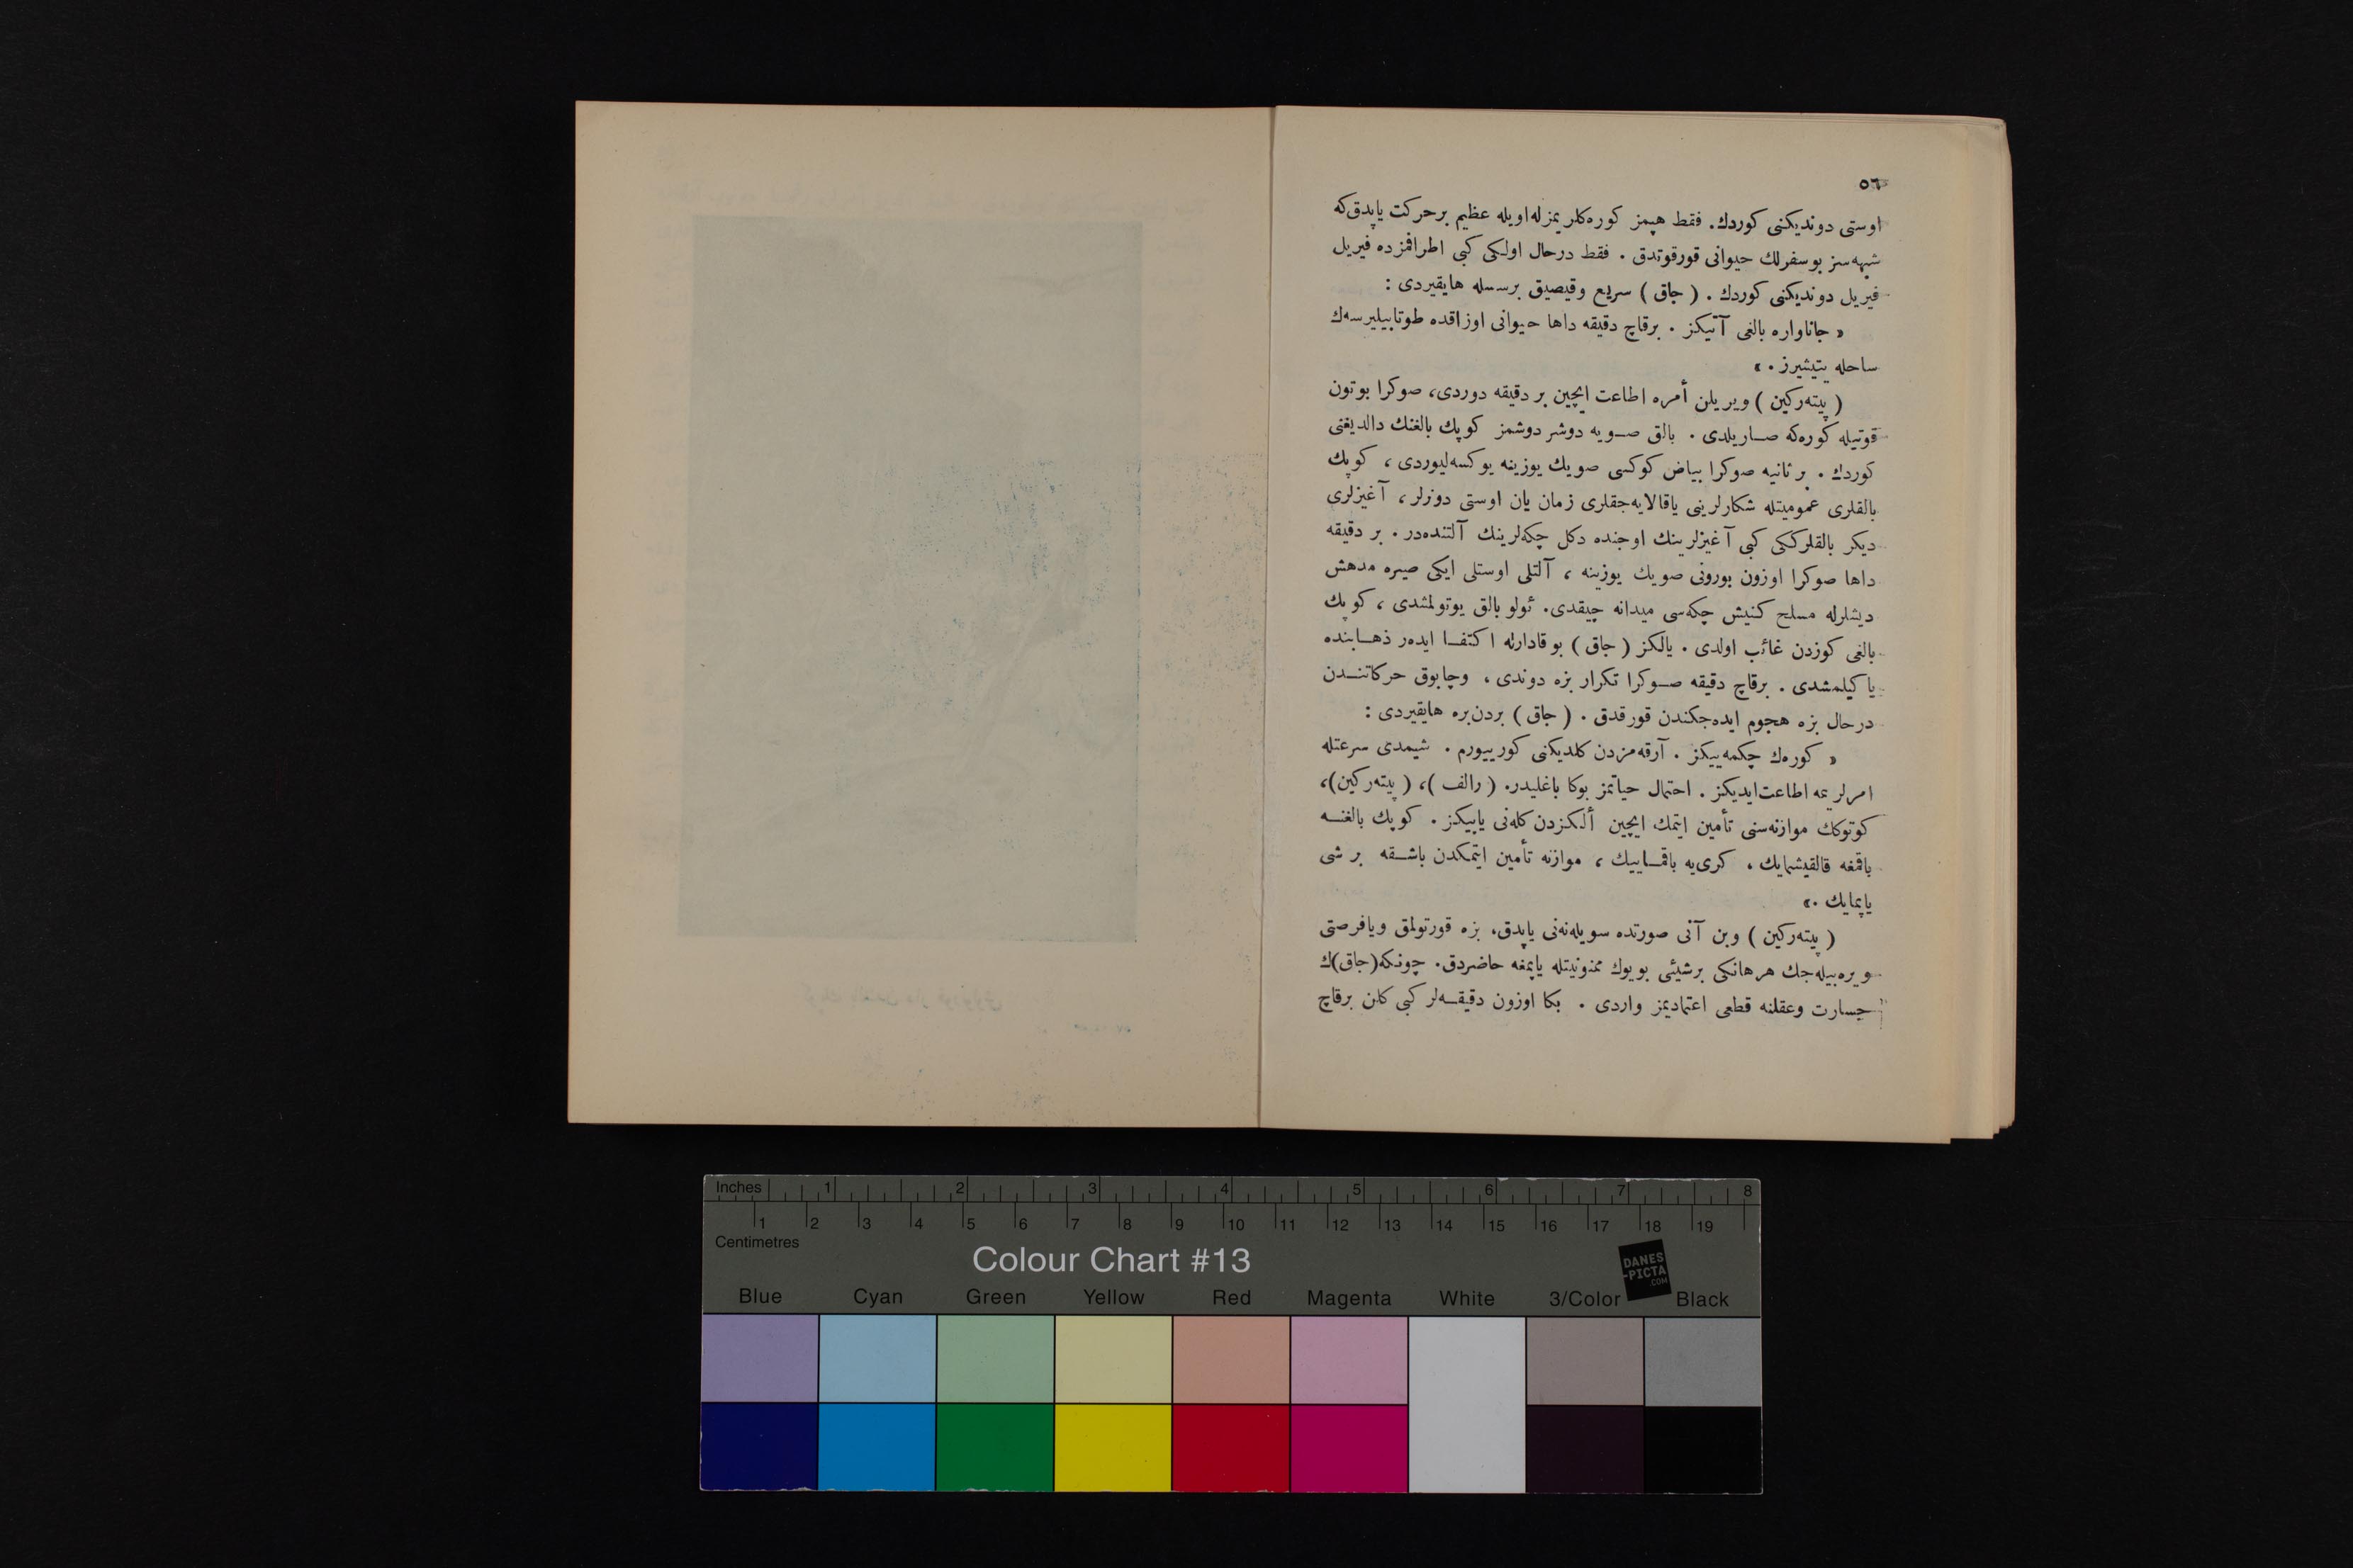 ٥٦
اوستی دوندیكنی كوردك. فقط هپمز كوره‌كلریمزله اویله عظیم برحركت یاپدق كه
شبهه‌سز بوسفرلك حیوانی قورقوتدق . فقط درحال اولكی كبی اطرافمزده فیریل
فیریل دوندیكنی كوردك . ( جاق ) سریع وقیصیق برسسله هایقیردی :
« جاناواره بالغی آتیكز . برقاچ دقیقه داها حیوانی اوزاقده طوتابیلیرسه‌ك
ساحله یتیشیرز . »
( پیته‌ركین ) ویریلن أمره اطاعت ایچین بر دقیقه دوردی، صوكرا بوتون
قوتیله كوره‌كه صاریلدی . بالق صویه دوشر دوشمز كوپك بالغنك دالدیغنی
كوردك . بر ثانیه صوكرا بیاض كوكسی صویك یوزینه یوكسه‌لیوردی ، كوپك
بالقلری عمومیتله شكارلرینی یاقالایه‌جقلری زمان یان اوستی دونرلر ، آغیزلری
دیكر بالقلركی كبی آغیزلرینك اوجنده دكل چكه‌لرینك آلتنده‌در . بر دقیقه
داها صوكرا اوزون بورونی صویك یوزینه ، آلتلی اوستلی ایكی صیره مدهش
دیشلرله مسلح كنیش چكه‌سی میدانه چیقدی. ئولو بالق یوتولمشدی ، كوپك
بالغی كوزدن غائب اولدی . یالكز ( جاق ) بوقادارله اكتفا ایده‌ر ذهابنده
یاكیلمشدی . برقاچ دقیقه صوكرا تكرار بزه دوندی ، وچابوق حركاتندن
درحال بزه هجوم ایده‌جكندن قورقدق . ( جاق ) بردن‌بره هایقیردی :
« كوره‌ك چكمه‌ییكز . آرقه‌مزدن كلدیكنی كورییورم . شیمدی سرعتله
امرلریمه اطاعت‌ایدیكز . احتمال حیاتمز بوكا باغلیدر. ( رالف )، ( پیته‌ركین)،
كوتوكك موازنه‌سنی تأمین ایتمك ایچین ألكزدن كله‌نی یاپیكز . كوپك بالغنه
باقمغه قالقیشمایك . كری‌یه باقماییك ، موازنه تأمین ایتمكدن باشقه بر شی
یاپمایك .»
( پیته‌ركین ) وبن آنی صورتده سویله‌نه‌نی یاپدق، بزه قورتولمق ویافرصتی
ویره‌بیله‌جك هرهانكی برشیئی بویوك ممنونیتله یاپمغه حاضردق. چونكه(جاق)ك
جسارت وعقلنه قطعی اعتمادیمز واردی . بكا اوزون دقیقه‌لر كبی كلن برقاچ
Inches 1 2 3 4 5 6 7 8
1 2 3 4 5 6 7 8 9 10 11 12 13 14 15 16 17 18 19
Centimetres
Colour Chart #13
DANES
-PICTA
.COM
Blue Cyan Green Yellow Red Magenta White 3/Color Black